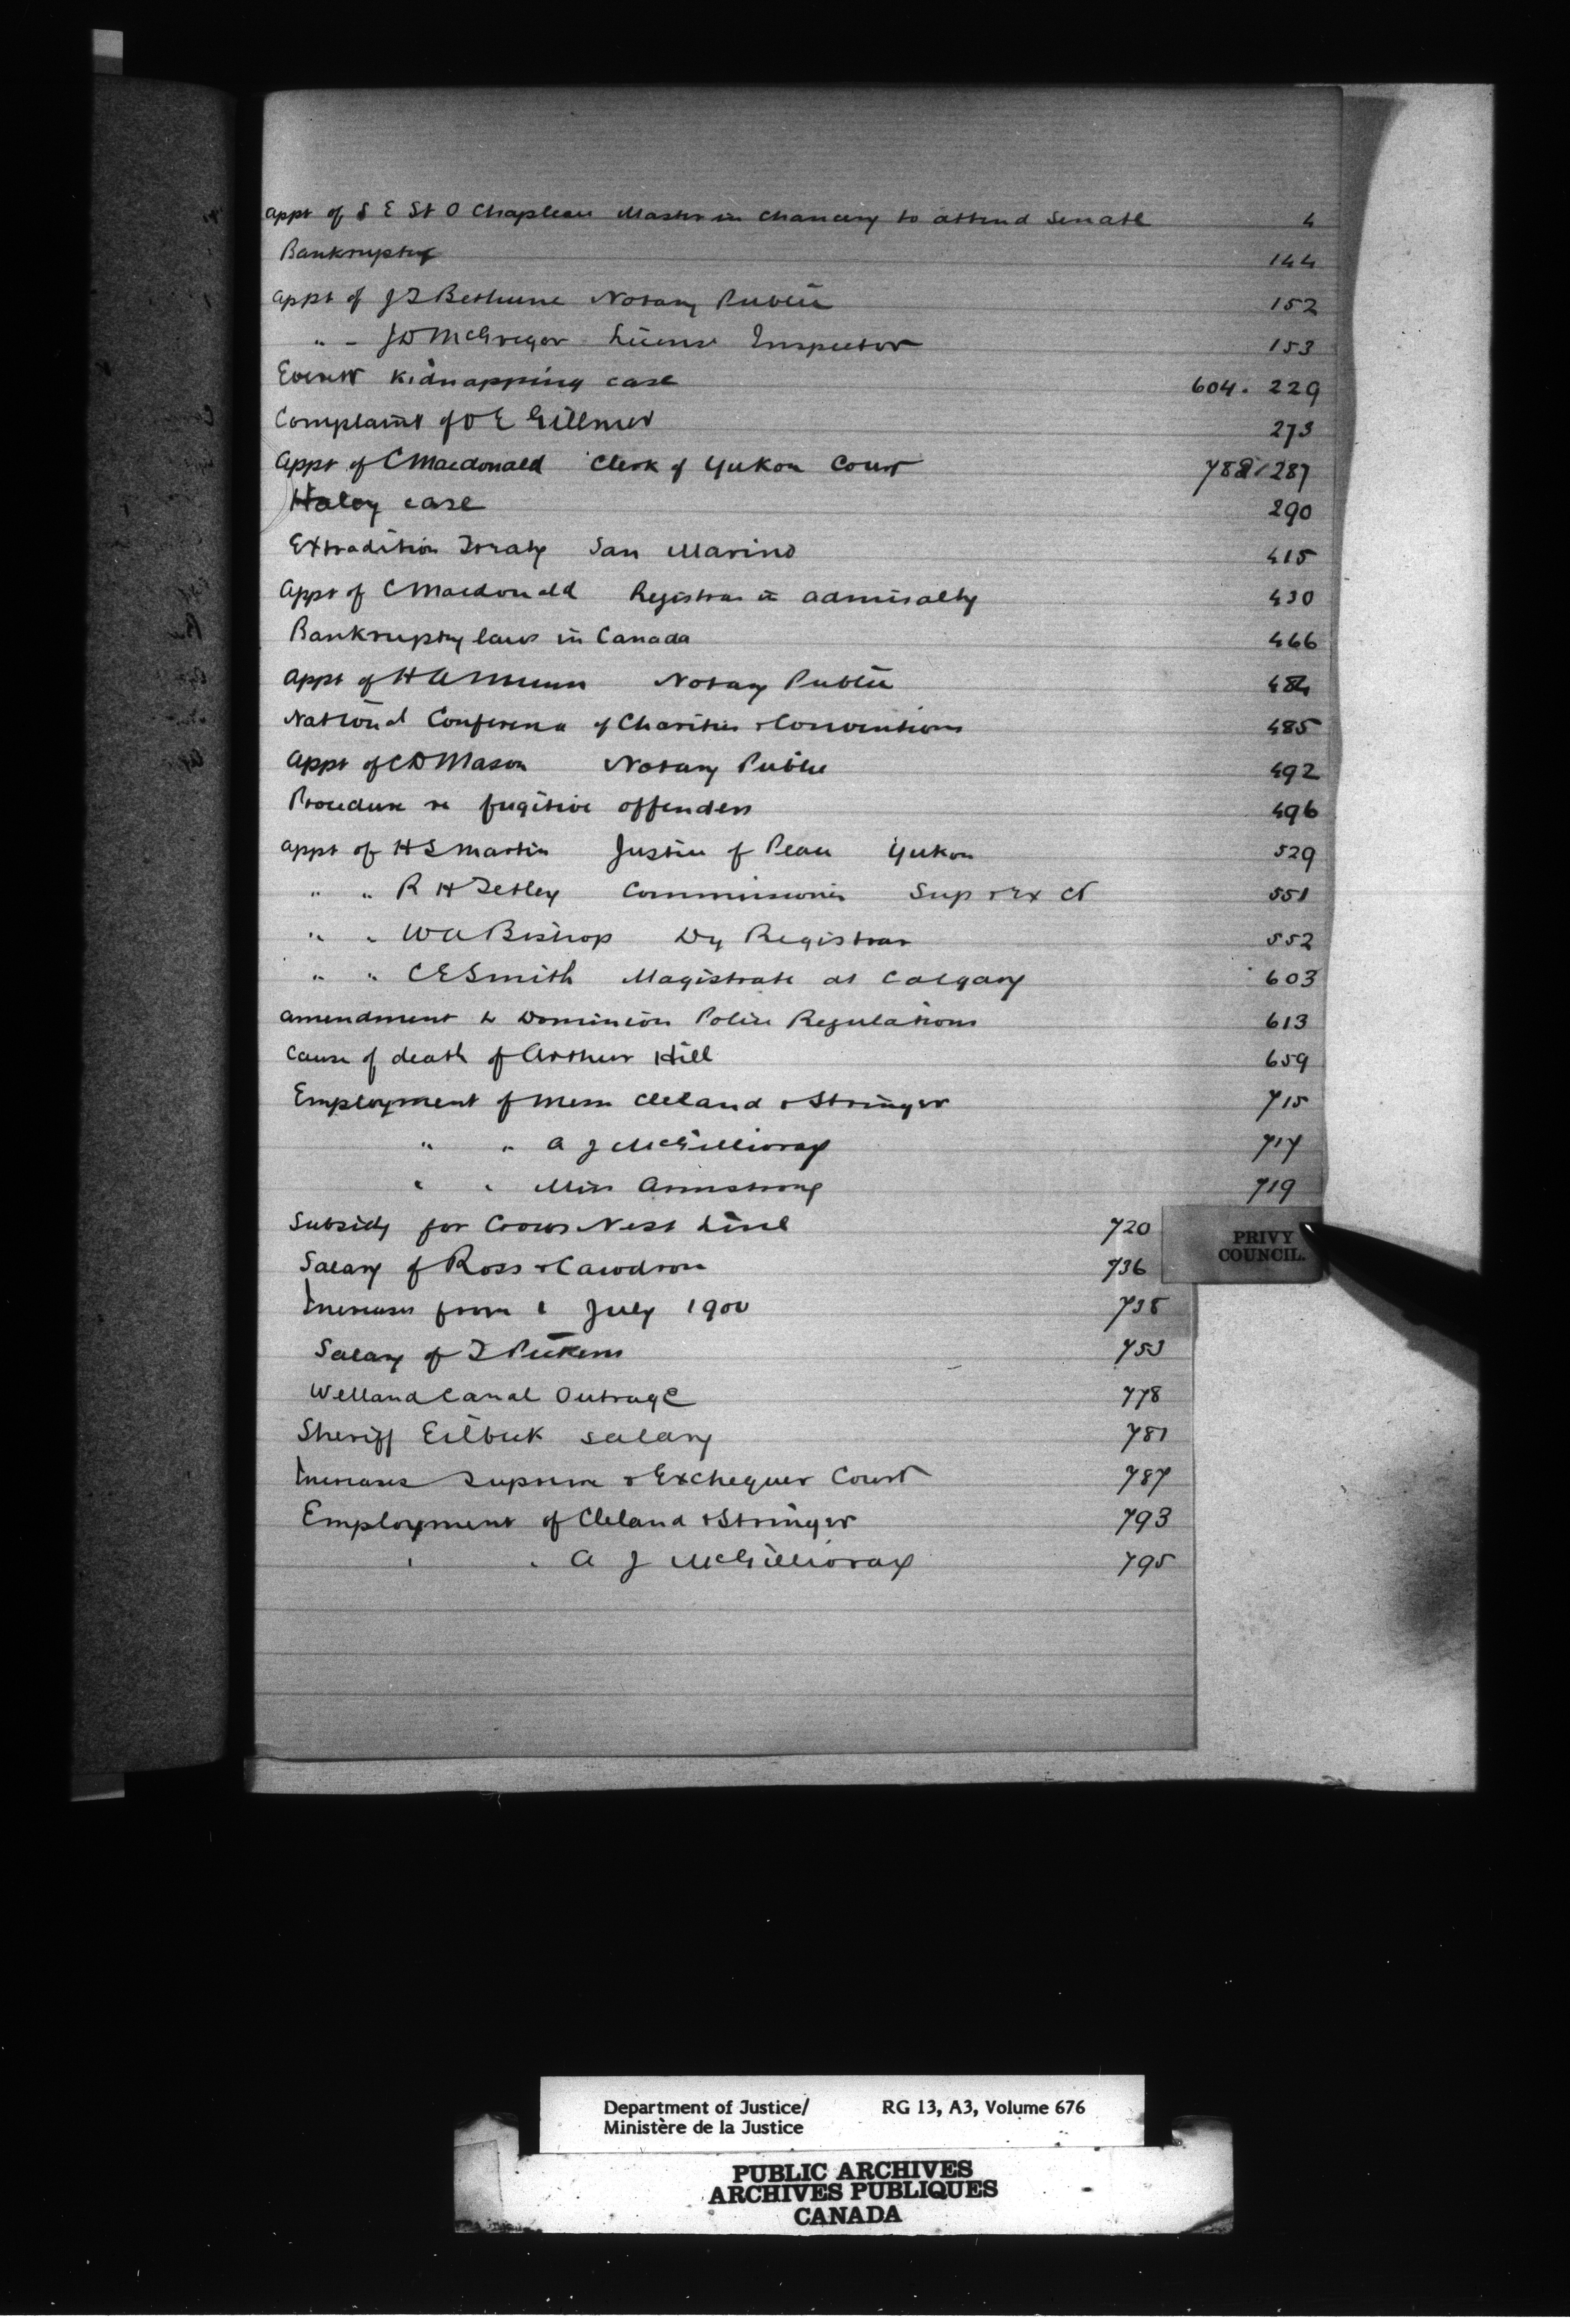 Appt of S E St O Chapleau Master in Chancery to attend Senate 4
Bankruptcy 144
Appt of J T Bethune Notary Public 152
" - J D McGregor License Inspector 153
Everett Kidnapping case 604. 229
Complaint of D E Gillmor 273
Appt of C Macdonald Clerk of Yukon Court 788/287
Haley case 290
Extradition Treaty San Marino 415
Appt of C Macdonald Registrar in Admiralty 430
Bankruptcy laws in Canada 466
Appt of H A Munn Notary Public 484
National Conference of Charities & Conventions 485
Appt of C D Mason Notary Public 492
Procedure re fugitive offenders 496
Appt of H S Martin Justice of Peace Yukon 529
" " R H Tetley Commissioner Sup & Ex Ct 551
" " W A Bishop Dy Registrar 552
" " C E Smith Magistrate at Calgary 603
Amendment to Dominion Police Regulations 613
Cause of death of Arthur Hill 659
Employment of Messrs Cleland & Stringer 715
" " A J McGillivray 717
" " Miss Armstrong 719
Subsidy for Crows Nest Line 720
PRIVY
COUNCIL.
Salary of Ross & Cawdron 736
Increases from 1 July 1900 738
Salary of T Pickens 753
Welland Canal Outrage 778
Sheriff Eilbeck salary 781
Increases Supreme & Exchequer Court 787
Employment of Cleland & Stringer 793
" " A J McGillivray 795
Department of Justice/ RG 13, A3, Volume 676
Ministère de la Justice
PUBLIC ARCHIVES
ARCHIVES PUBLIQUES
CANADA